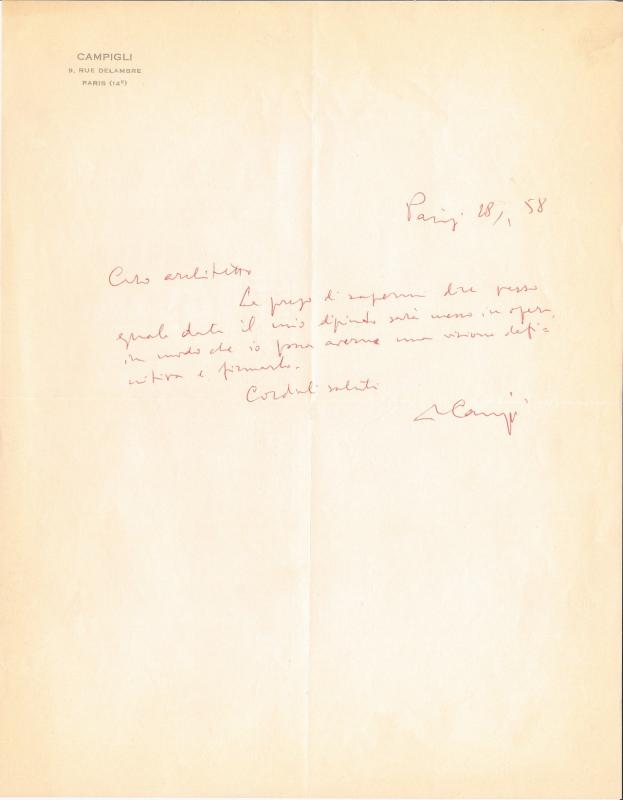 CAMPIGLI
9, RUE DELAMBRE
PARIS (14e)
Parigi 28/1 58
Caro architetto
La prego di sapermi dire verso
quale data il mio dipinto sarà messo in opera,
in modo che io possa averne una visione defi=
nitiva e firmarlo.
Cordiali saluti
Campigli